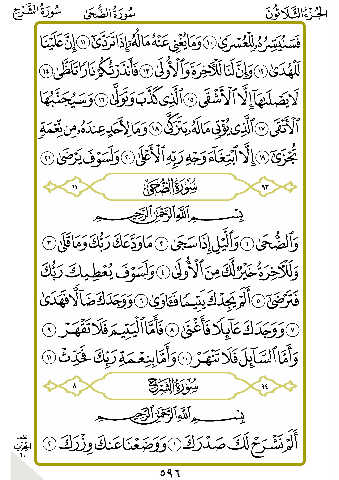 الجزء الثلاثون سورة الضحى سورة الشرح
فَسَنُيَسِّرُهُۥ لِلْعُسْرَىٰ ١٠ وَمَا يُغْنِى عَنْهُ مَالُهُۥٓ إِذَا تَرَدَّىٰٓ ١١ إِنَّ عَلَيْنَا
لَلْهُدَىٰ ١٢ وَإِنَّ لَنَا لَلْءَاخِرَةَ وَٱلْأُولَىٰ ١٣ فَأَنذَرْتُكُمْ نَارًا تَلَظَّىٰ ١٤
لَا يَصْلَىٰهَآ إِلَّا ٱلْأَشْقَى ١٥ ٱلَّذِى كَذَّبَ وَتَوَلَّىٰ ١٦ وَسَيُجَنَّبُهَا
ٱلْأَتْقَى ١٧ ٱلَّذِى يُؤْتِى مَالَهُۥ يَتَزَكَّىٰ ١٨ وَمَا لِأَحَدٍ عِندَهُۥ مِن نِّعْمَةٍ
تُجْزَىٰٓ ١٩ إِلَّا ٱبْتِغَآءَ وَجْهِ رَبِّهِ ٱلْأَعْلَىٰ ٢٠ وَلَسَوْفَ يَرْضَىٰ ٢١
٩٣ سورة الضحى ١١
بِسْمِ ٱللَّهِ ٱلرَّحْمَٰنِ ٱلرَّحِيمِ
وَٱلضُّحَىٰ ١ وَٱلَّيْلِ إِذَا سَجَىٰ ٢ مَا وَدَّعَكَ رَبُّكَ وَمَا قَلَىٰ ٣
وَلَلْءَاخِرَةُ خَيْرٌ لَّكَ مِنَ ٱلْأُولَىٰ ٤ وَلَسَوْفَ يُعْطِيكَ رَبُّكَ
فَتَرْضَىٰٓ ٥ أَلَمْ يَجِدْكَ يَتِيمًا فَـَٔاوَىٰ ٦ وَوَجَدَكَ ضَآلًّا فَهَدَىٰ
٧ وَوَجَدَكَ عَآئِلًا فَأَغْنَىٰ ٨ فَأَمَّا ٱلْيَتِيمَ فَلَا تَقْهَرْ ٩
وَأَمَّا ٱلسَّآئِلَ فَلَا تَنْهَرْ ١٠ وَأَمَّا بِنِعْمَةِ رَبِّكَ فَحَدِّثْ ١١
٩٤ سورة الشرح ٨
بِسْمِ ٱللَّهِ ٱلرَّحْمَٰنِ ٱلرَّحِيمِ
أَلَمْ نَشْرَحْ لَكَ صَدْرَكَ ١ وَوَضَعْنَا عَنكَ وِزْرَكَ ٢
الحزب
٦٠
٥٩٦